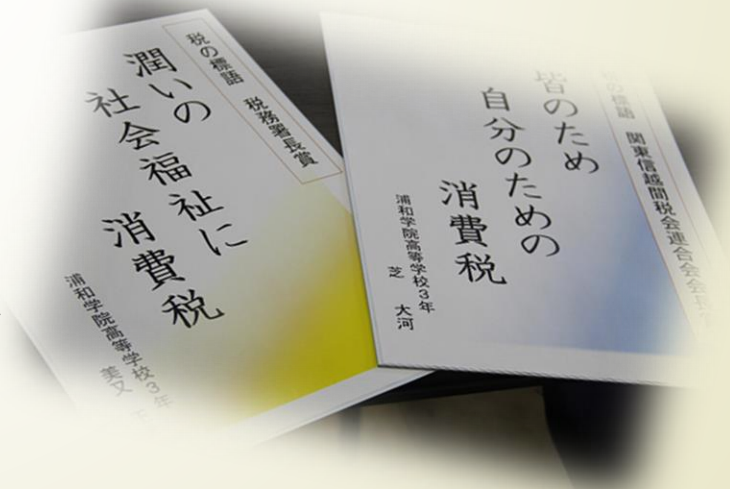 税の標語 税務署長賞
潤いの
社会福祉に
消費税
浦和学院高等学校3年
美又
の標語 関東信越間税会連合会会
皆のため
自分のための
消費税
浦和学院高等学校3年
芝 大河